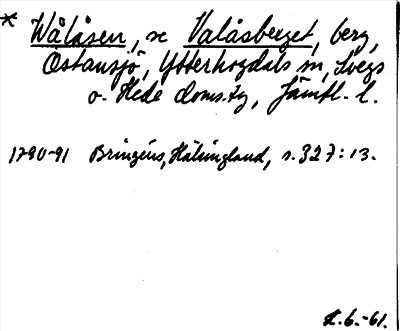 * Wålåsen, se Valåsberget, berg,
Östansjö, Ytterhogdals sn, Svegs
o. Hede doms.tg, Jämtl. l.
1790-91 Bringéus, Hälsingland, s. 327:13.
L. 6. -61.